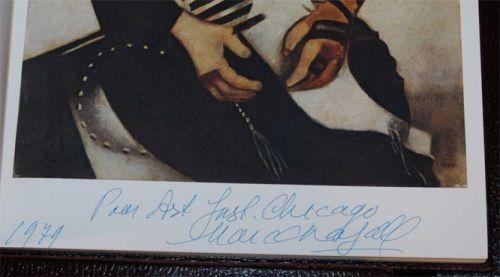 Pour Art Inst. Chicago
Marc Chagall
1979